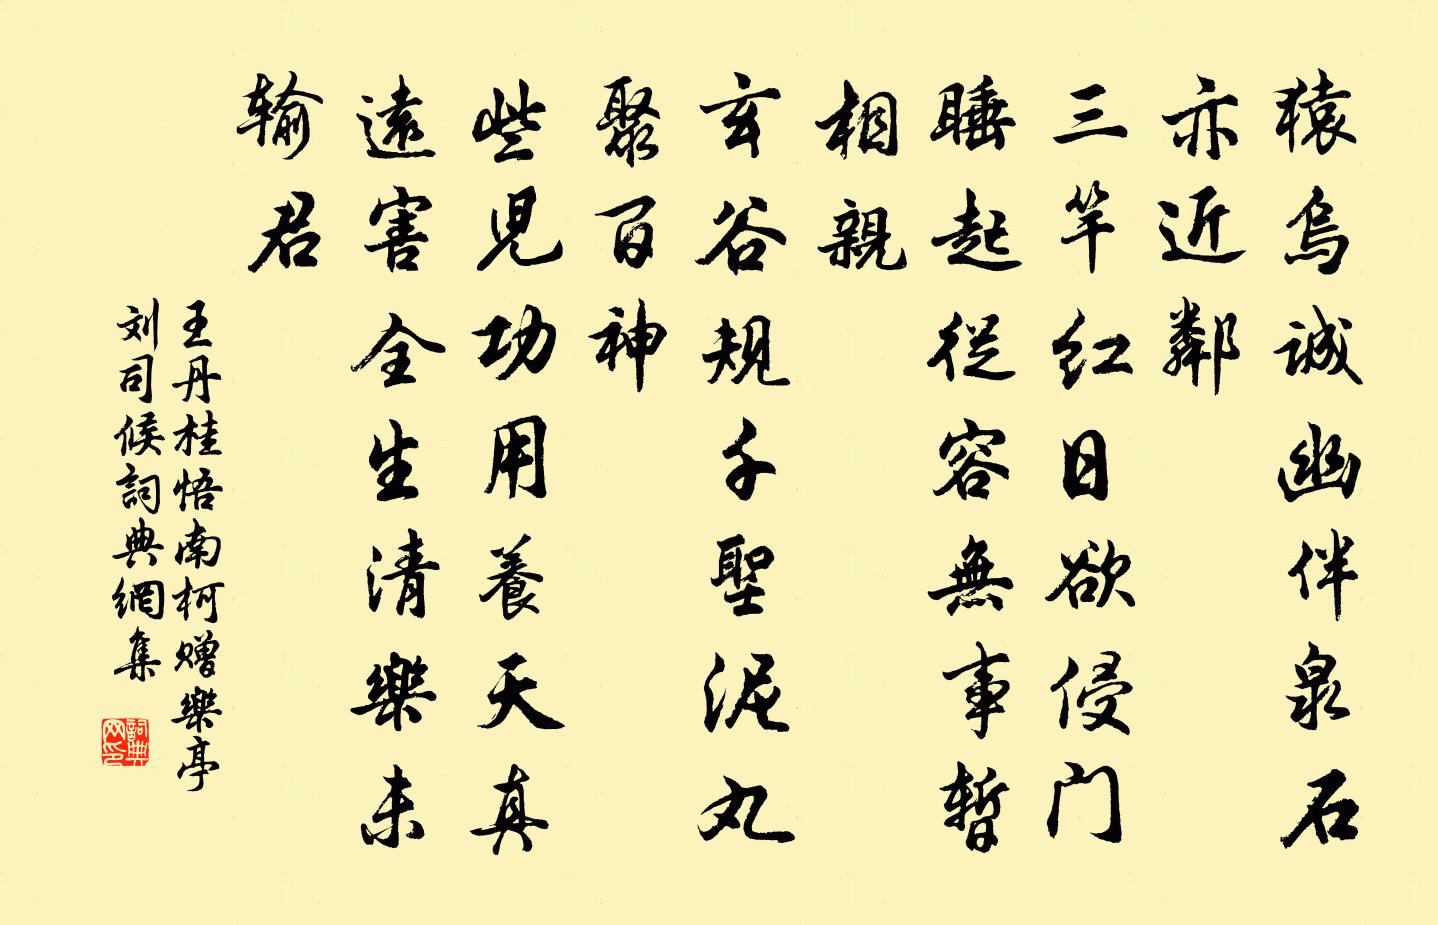 猿鸟誠幽伴泉石
亦近鄰
三竿红日欲侵门
睡起從容無事暫
相親
玄谷規千聖泥丸
聚百神
些兒功用養天真
遠害全生清樂未
输君
王丹桂悟南柯赠樂亭
刘司候詞典網集
詞典
网印